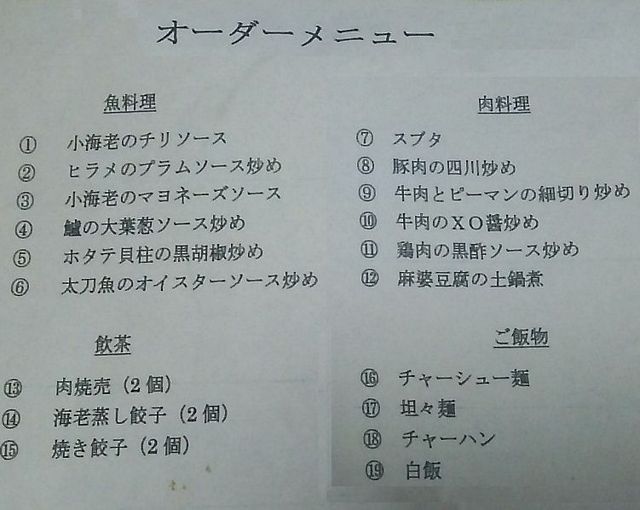 オーダーメニュー
魚料理
① 小海老のチリソース
② ヒラメのプラムソース炒め
③ 小海老のマヨネーズソース
④ 鱸の大葉葱ソース炒め
⑤ ホタテ貝柱の黒胡椒炒め
⑥ 太刀魚のオイスターソース炒め
肉料理
⑦ スブタ
⑧ 豚肉の四川炒め
⑨ 牛肉とピーマンの細切り炒め
⑩ 牛肉のXO醤炒め
⑪ 鶏肉の黒酢ソース炒め
⑫ 麻婆豆腐の土鍋煮
飲茶
⑬ 肉焼売(2個)
⑭ 海老蒸し餃子(2個)
⑮ 焼き餃子(2個)
ご飯物
⑯ チャーシュー麺
⑰ 坦々麺
⑱ チャーハン
⑲ 白飯